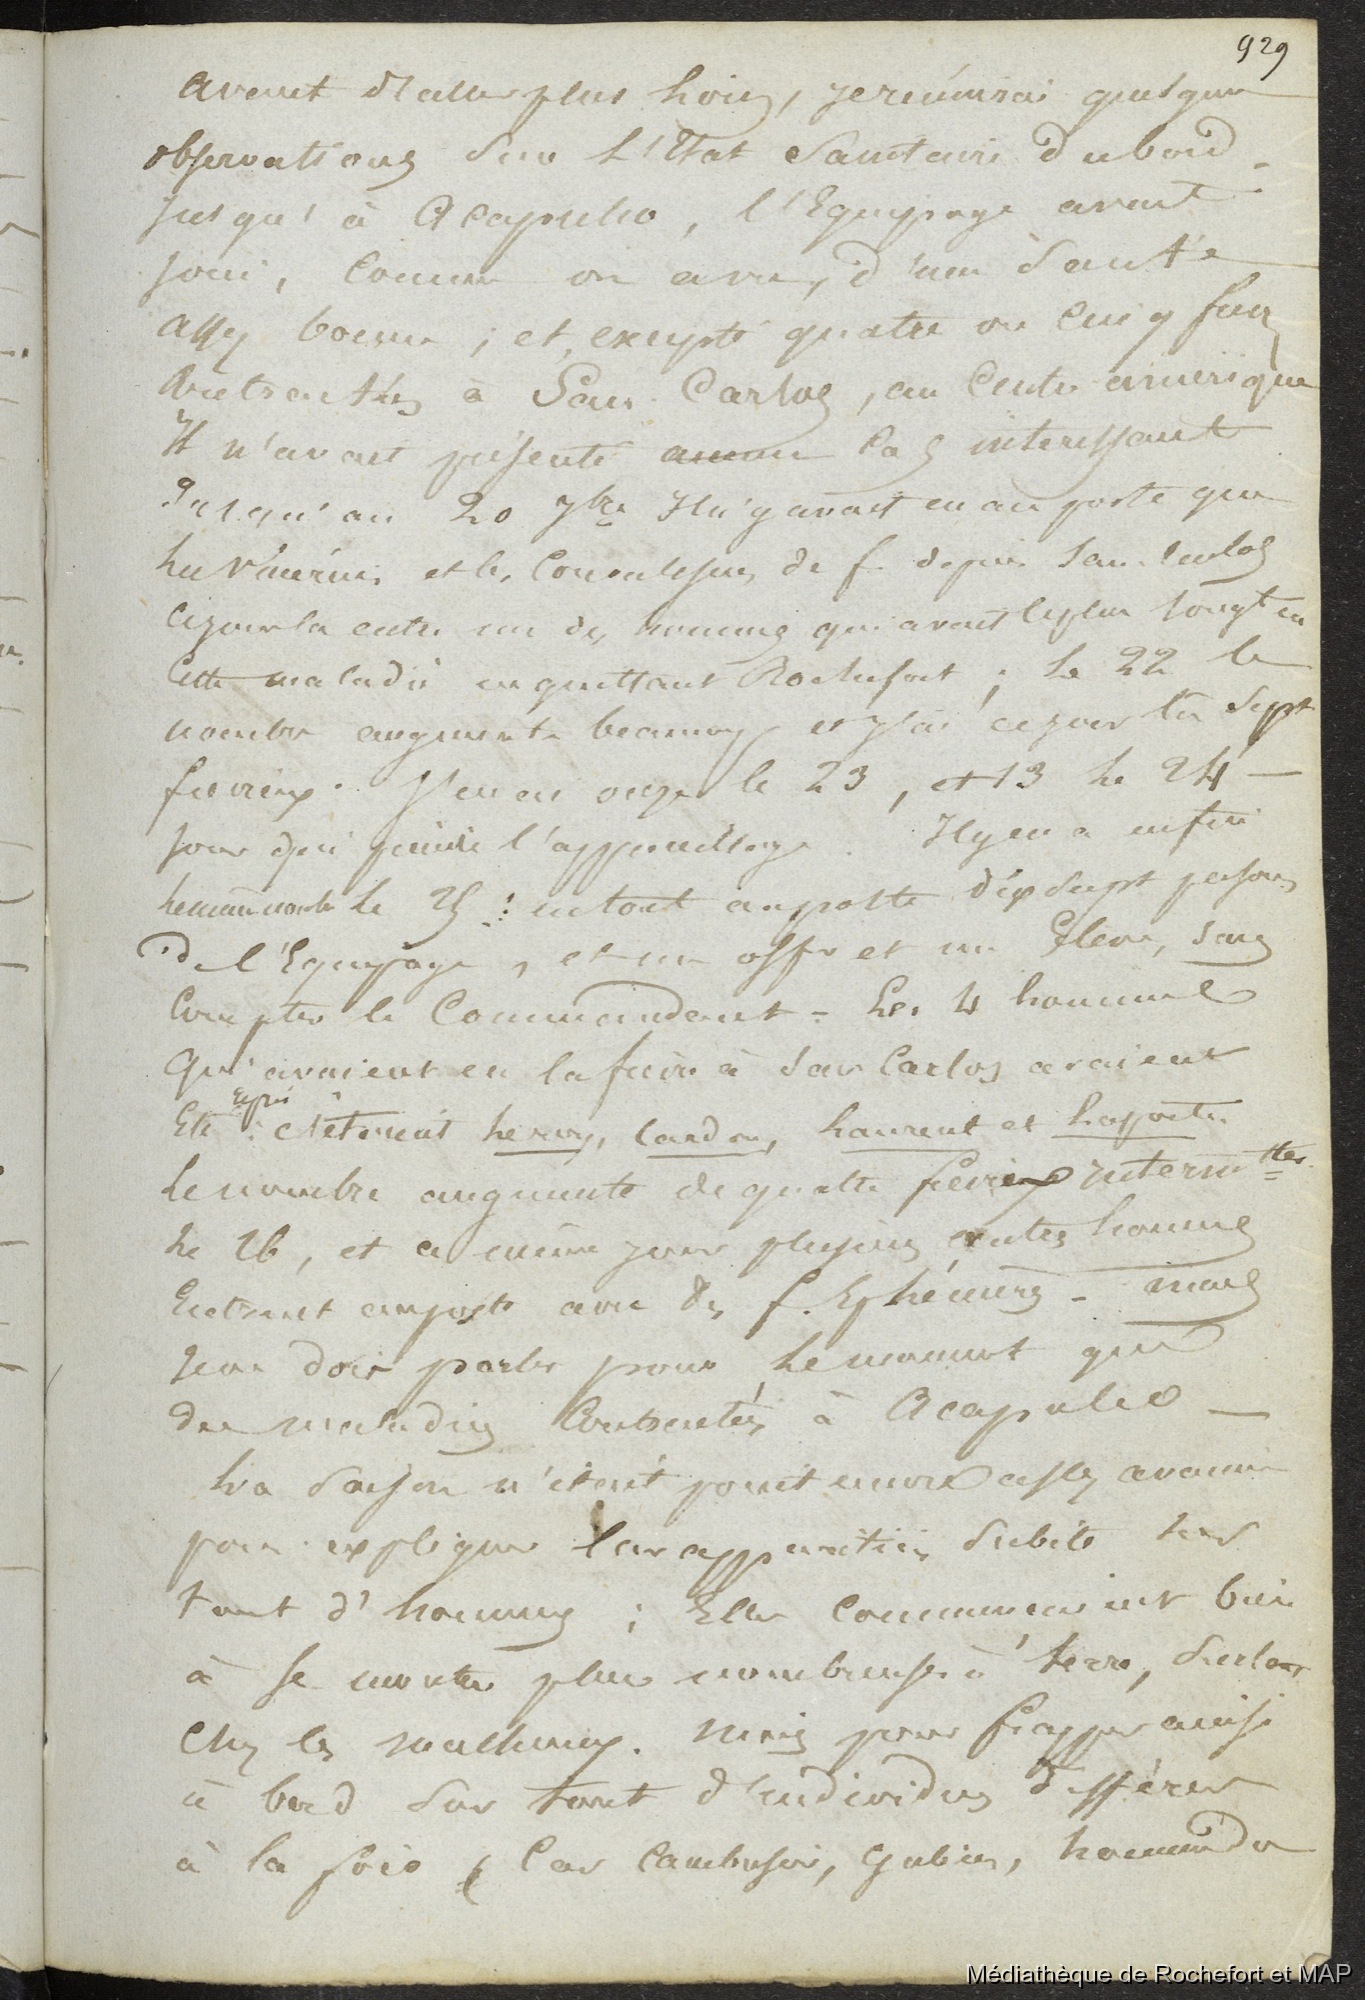 929
Avant d'aller plus loin, je réunirai quelques
observations sur l'Etat Sanitaire du bord
Jusqu'à Acapulco, l'Equipage avait
joui, comme on a vu, d'une Santé
assez bonne ; et, excepté quatre ou cinq fièv
contractées à San Carlos, au Centre amérique
Il n'avait présenté aucun cas intéressant
Jusqu'au 20 7bre Il n'y avait eu au poste que
les Vénériens et les Convalesens de f. depuis San Carlos
Ce jour là entre un des hommes qui avait le plus longt eu
Cette maladie en quittant Rochefort ; le 22 le
nombre augmente beaucoup et j'ai ce jour là Sept
fiévreux. J'en eu onze le 23, et 13 le 24 —
jour qui précède l'appareillage. Il y en a enfin
le même nombre le 25 : en tout au poste dix Sept person
De l'Equipage, et un offr et un Elève, sans
Compter le Commandant - Les 4 hommes
Qui avaient eu la fièvre à San Carlos avaient
Eté repris : C'étaient hervy, Cardon, Laurent et Laporte.
Le nombre augmente de quatre fiévreux intermttes
Le 26, et ce même jour plusieurs autres hommes
Entrent au poste avec des f. Ephémères - mais
Je ne dois parler pour le moment que
Des maladies Contractées à Acapulco —
La Saison n'était point encore assez avancée
pour expliquer leur apparition Subite sur
tant d'hommes ; Elles Commencaient bien
à se montrer plus nombreuses à terre, surtout
Chez les malheureux. Mais pour frapper ainsi
à bord sur tant d'individus différens
à la fois ( Car Cambusier, Gabier, homme du
Médiathèque de Rochefort et MAP